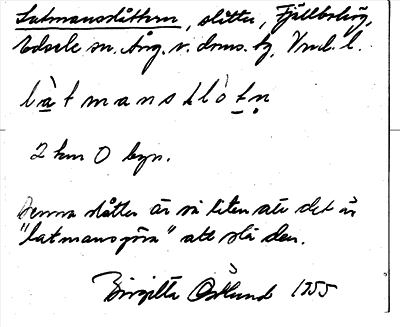 Latmansslåtten, slåtter, Fjällboberg,
Edsele sn. Ång. v. doms. tg, Vnrl. l.
làtmanslòtn
2 km O byn.
Denna slåtter är så liten att det är
"latmansgöra" att slå den.
Birgitta Östlund 1955